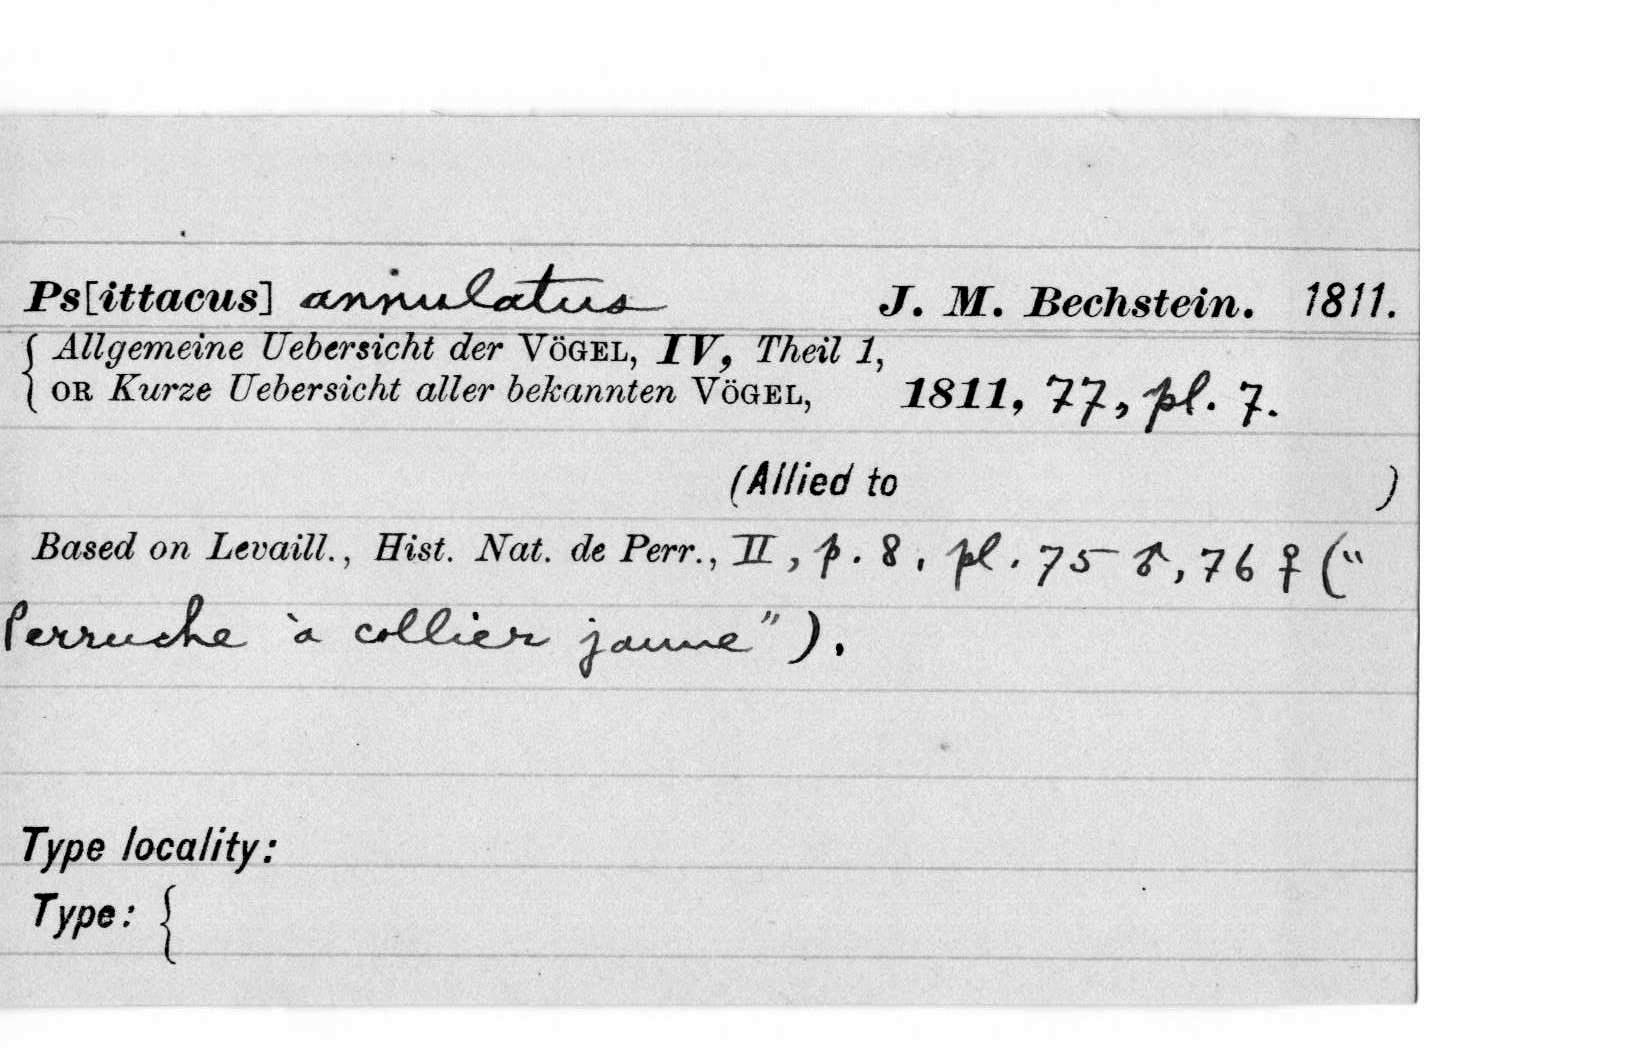 Ps[ittacus] annulatus J. M. Bechstein. 1811.
Allgemeine Uebersicht der VÖGEL, IV, Theil 1,
OR Kurze Uebersicht aller bekannten VÖGEL, 1811, 77, pl. 7.
(Allied to )
Based on Levaill., Hist. Nat. de Perr., II, p. 8, pl. 75 ♂, 76 ♀ ("
Perruche à collier jaune").
Type locality:
Type: {